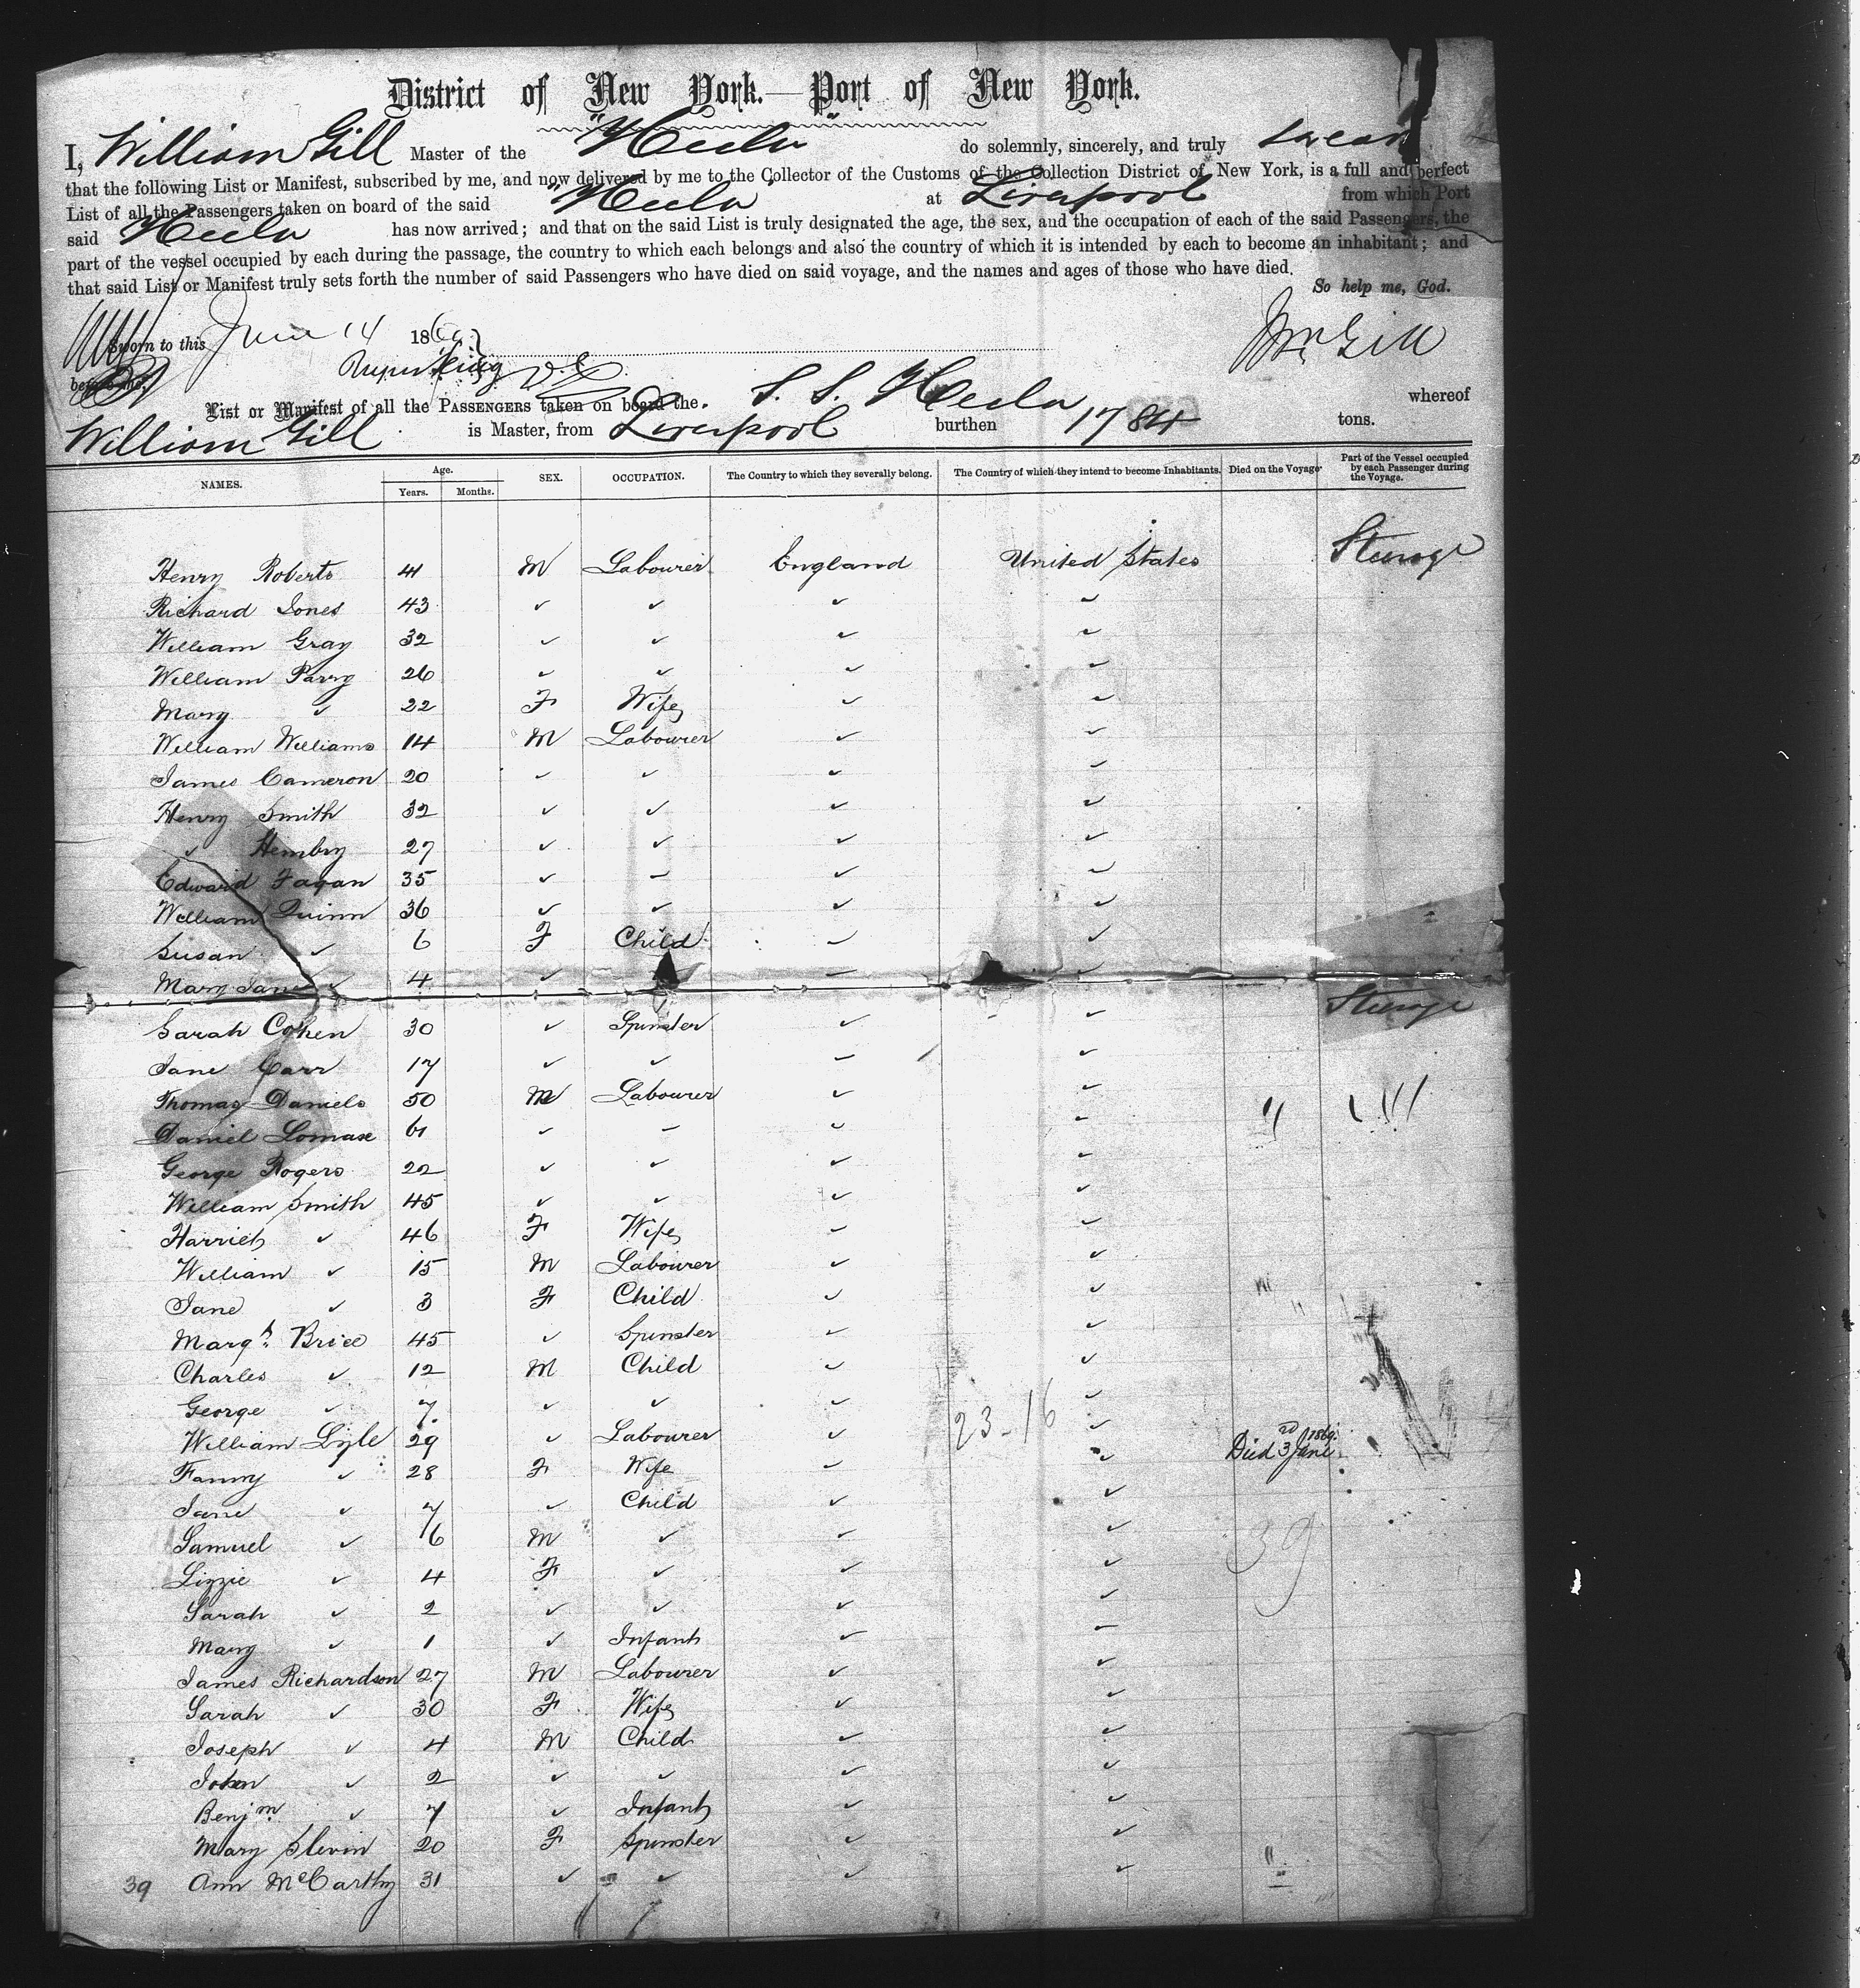 District of New York.—Port of New York.
I, William Gill Master of the "Hecla" do solemnly, sincerely, and truly swear
that the following List or Manifest, subscribed by me, and now delivered by me to the Collector of the Customs of the Collection District of New York, is a full and perfect
List of all the Passengers taken on board of the said "Hecla" at Liverpool from which Port
said Hecla has now arrived; and that on the said List is truly designated the age, the sex, and the occupation of each of the said Passengers, the
part of the vessel occupied by each during the passage, the country to which each belongs and also the country of which it is intended by each to become an inhabitant; and
that said List or Manifest truly sets forth the number of said Passengers who have died on said voyage, and the names and ages of those who have died.
So help me, God.
Sworn to this June 14 1869 Wm Gill
before me,
List or Manifest of all the PASSENGERS taken on board the S. S. Hecla whereof
William Gill is Master, from Liverpool burthen 1784 tons.
NAMES. Age. Years. Months. SEX. OCCUPATION. The Country to which they severally belong. The Country of which they intend to become Inhabitants. Died on the Voyage Part of the Vessel occupied by each Passenger during the Voyage.
Henry Roberts 41 M Labourer England United States Steerage
Richard Jones 43 ✓ ✓ ✓ ✓
William Gray 32 ✓ ✓ ✓ ✓
William Parry 26 ✓ ✓ ✓ ✓
Mary ✓ 22 F Wife ✓ ✓
William Williams 14 M Labourer ✓ ✓
James Cameron 20 ✓ ✓ ✓ ✓
Henry Smith 32 ✓ ✓ ✓ ✓
✓ Hembry 27 ✓ ✓ ✓ ✓
Edward Fagan 35 ✓ ✓ ✓ ✓
William Quinn 36 ✓ ✓ ✓ ✓
Susan ✓ 6 F Child ✓ ✓
Mary Jane ✓ 4 ✓ ✓ ✓
Steerage
Sarah Cohen 30 ✓ Spinster ✓ ✓
Jane Carr 17 ✓ ✓ ✓ ✓
Thomas Daniels 50 M Labourer ✓ ✓
Daniel Lomax 61 ✓ ✓ ✓ ✓
George Rogers 22 ✓ ✓ ✓ ✓
William Smith 45 ✓ ✓ ✓ ✓
Harriet ✓ 46 F Wife ✓ ✓
William ✓ 15 M Labourer ✓ ✓
Jane ✓ 3 F Child ✓ ✓
Margt. Brice 45 ✓ Spinster ✓ ✓
Charles ✓ 12 M Child ✓ ✓
George ✓ 7 ✓ ✓ ✓ ✓
23-16
William Lyle 29 ✓ Labourer ✓ ✓ Died 3rd June 1869.
Fanny ✓ 28 F Wife ✓ ✓
Jane ✓ 7 ✓ Child ✓ ✓
Samuel ✓ 6 M ✓ ✓ ✓
39
Lizzie ✓ 4 F ✓ ✓ ✓
Sarah ✓ 2 ✓ ✓ ✓ ✓
Mary ✓ 1 ✓ Infant ✓ ✓
James Richardson 27 M Labourer ✓ ✓
Sarah ✓ 30 F Wife ✓ ✓
Joseph ✓ 4 M Child ✓ ✓
John ✓ 2 ✓ ✓ ✓ ✓
Benjm. ✓ 7 ✓ Infant ✓ ✓
Mary Slevin 20 F Spinster ✓ ✓
39 Ann McCarthy 31 ✓ ✓ ✓ ✓